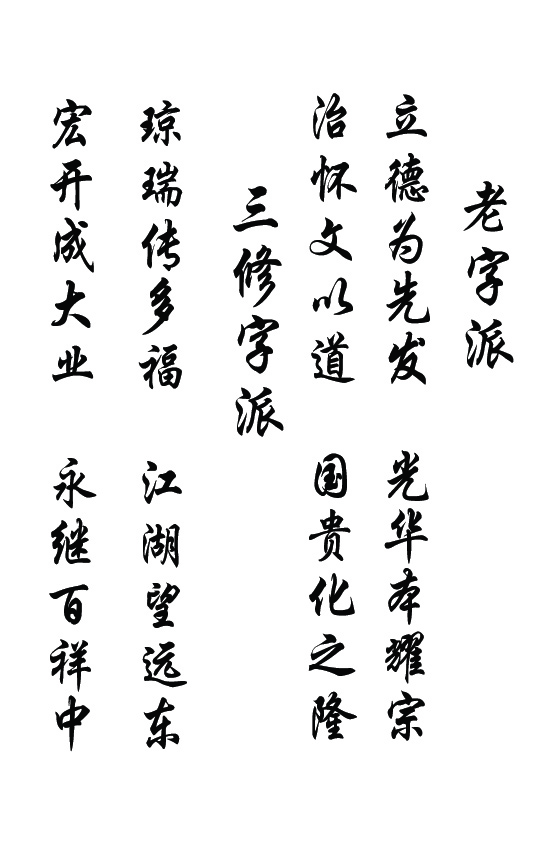 老字派
立德为先发 光华本耀宗
治怀文以道 国贵化之隆
三修字派
琼瑞传多福 江湖望远东
宏开成大业 永继百祥中